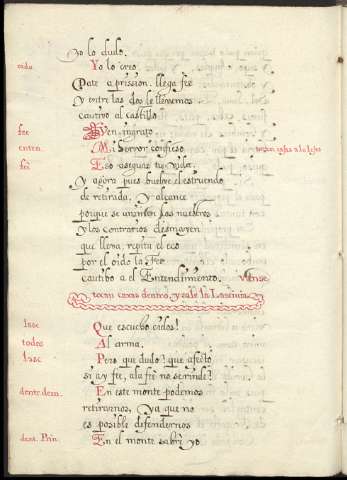 Yo lo dudo.
oido. Yo lo creo.
Date a prission. llega fee
y entre las dos le llevemos
cautivo al castillo
fee Ven ingrato
enten. Mi error confieso.
fee Eso asegura tu vida.
y agora pues buelve el estruendo
de retirada, y alcance
porque se animen los nuestros
y los contrarios desmayen
que lleva, repita el eco
por el oido la Fee
cautibo a el Entendimiento. Vanse
tocan caxas dentro, y sale la Lascivia
lasc Que escucho oidos!
todos Al arma.
lasc Pero que dudo? que afecto
si ay fee, a la fe no se rinde?
dentro dem. En este monte podemos
retirarnos, ya que no
es posible defendernos
dent. Prin. En el monte sabre yo